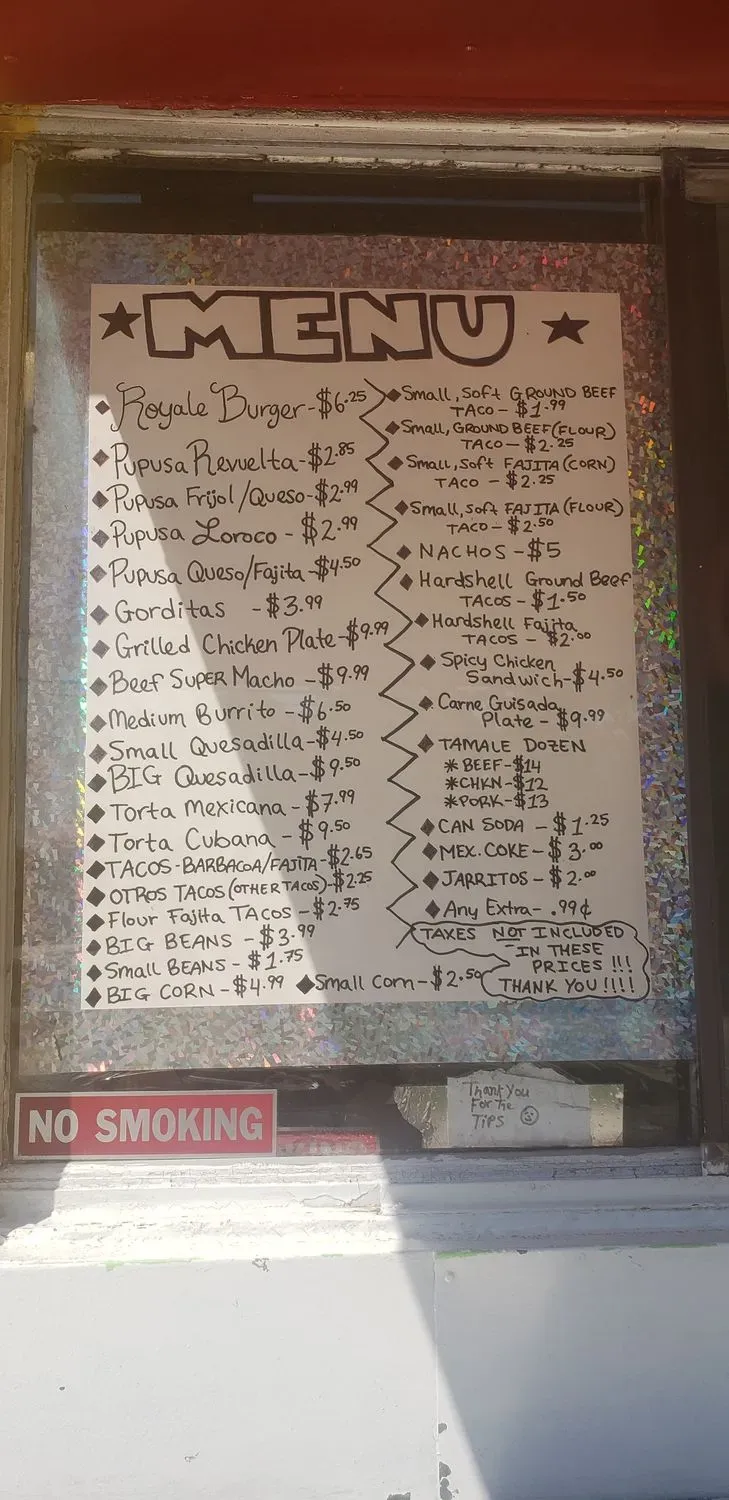 ★ MENU ★
Royale Burger-$6.25
Pupusa Revuelta-$2.85
Pupusa Frijol/Queso-$2.99
Pupusa Loroco - $2.99
Pupusa Queso/Fajita-$4.50
Gorditas -$3.99
Grilled Chicken Plate-$9.99
Beef SUPER Macho -$9.99
Medium Burrito -$6.50
Small Quesadilla-$4.50
BIG Quesadilla-$9.50
Torta Mexicana-$7.99
Torta Cubana - $9.50
TACOS-BARBACOA/FAJITA-$2.65
OTROS TACOS (OTHER TACOS)-$2.25
Flour Fajita TACOS -$2.75
BIG BEANS - $3.99
Small BEANS - $1.75
BIG CORN - $4.99
Small Corn - $2.50
Small, Soft GROUND BEEF
TACO - $1.99
Small, GROUND BEEF (FLOUR)
TACO - $2.25
Small, Soft FAJITA (CORN)
TACO - $2.25
Small, Soft FAJITA (FLOUR)
TACO - $2.50
NACHOS - $5
Hardshell Ground Beef
TACOS - $1.50
Hardshell Fajita
TACOS - $2.00
Spicy Chicken
Sandwich-$4.50
Carne Guisada
Plate - $9.99
TAMALE DOZEN
*BEEF-$14
*CHKN-$12
*PORK-$13
CAN SODA - $1.25
MEX. COKE - $3.00
JARRITOS - $2.00
Any Extra- .99¢
TAXES NOT INCLUDED
IN THESE
PRICES !!!
THANK YOU !!!!
NO SMOKING
Thank You
For The
TIPS